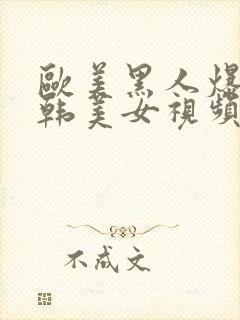 歐美黑人爆
韩美女視頻
不成文